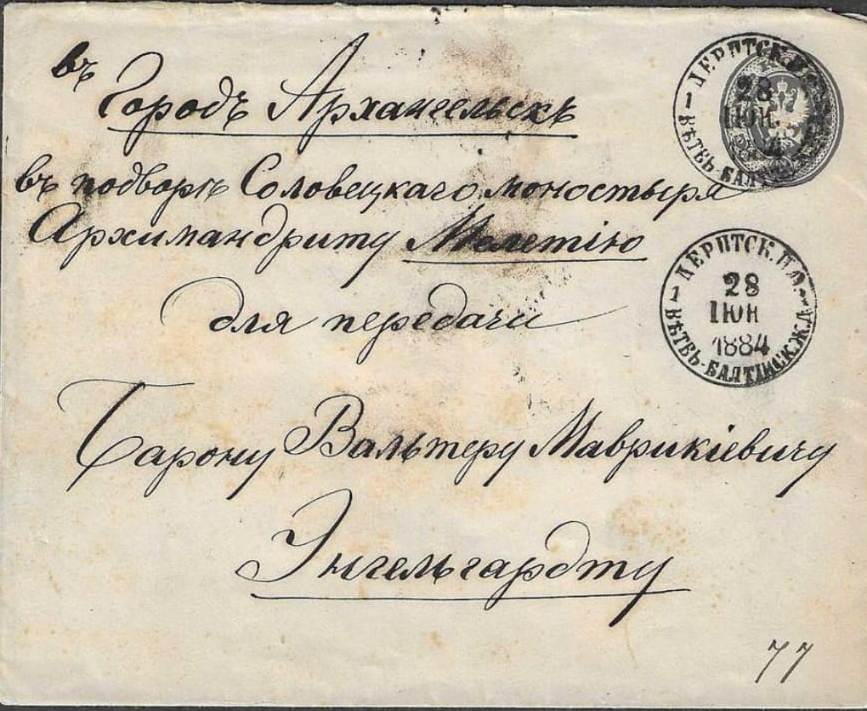 въ
Городъ Архангельскъ
въ подворъ Соловецкаго моностыря
Архимандриту Мелетію
для передачи
Барону Вальтеру Маврикіевичу
Энгельгардту
ДЕРПТСК.
28
ІЮН.
ВѢТВЬ-БАЛТ
ДЕРПТСК.П.О.
1
28
ІЮН
1884
ВѢТВЬ-БАЛТІЙСК.Ж.Д.
77